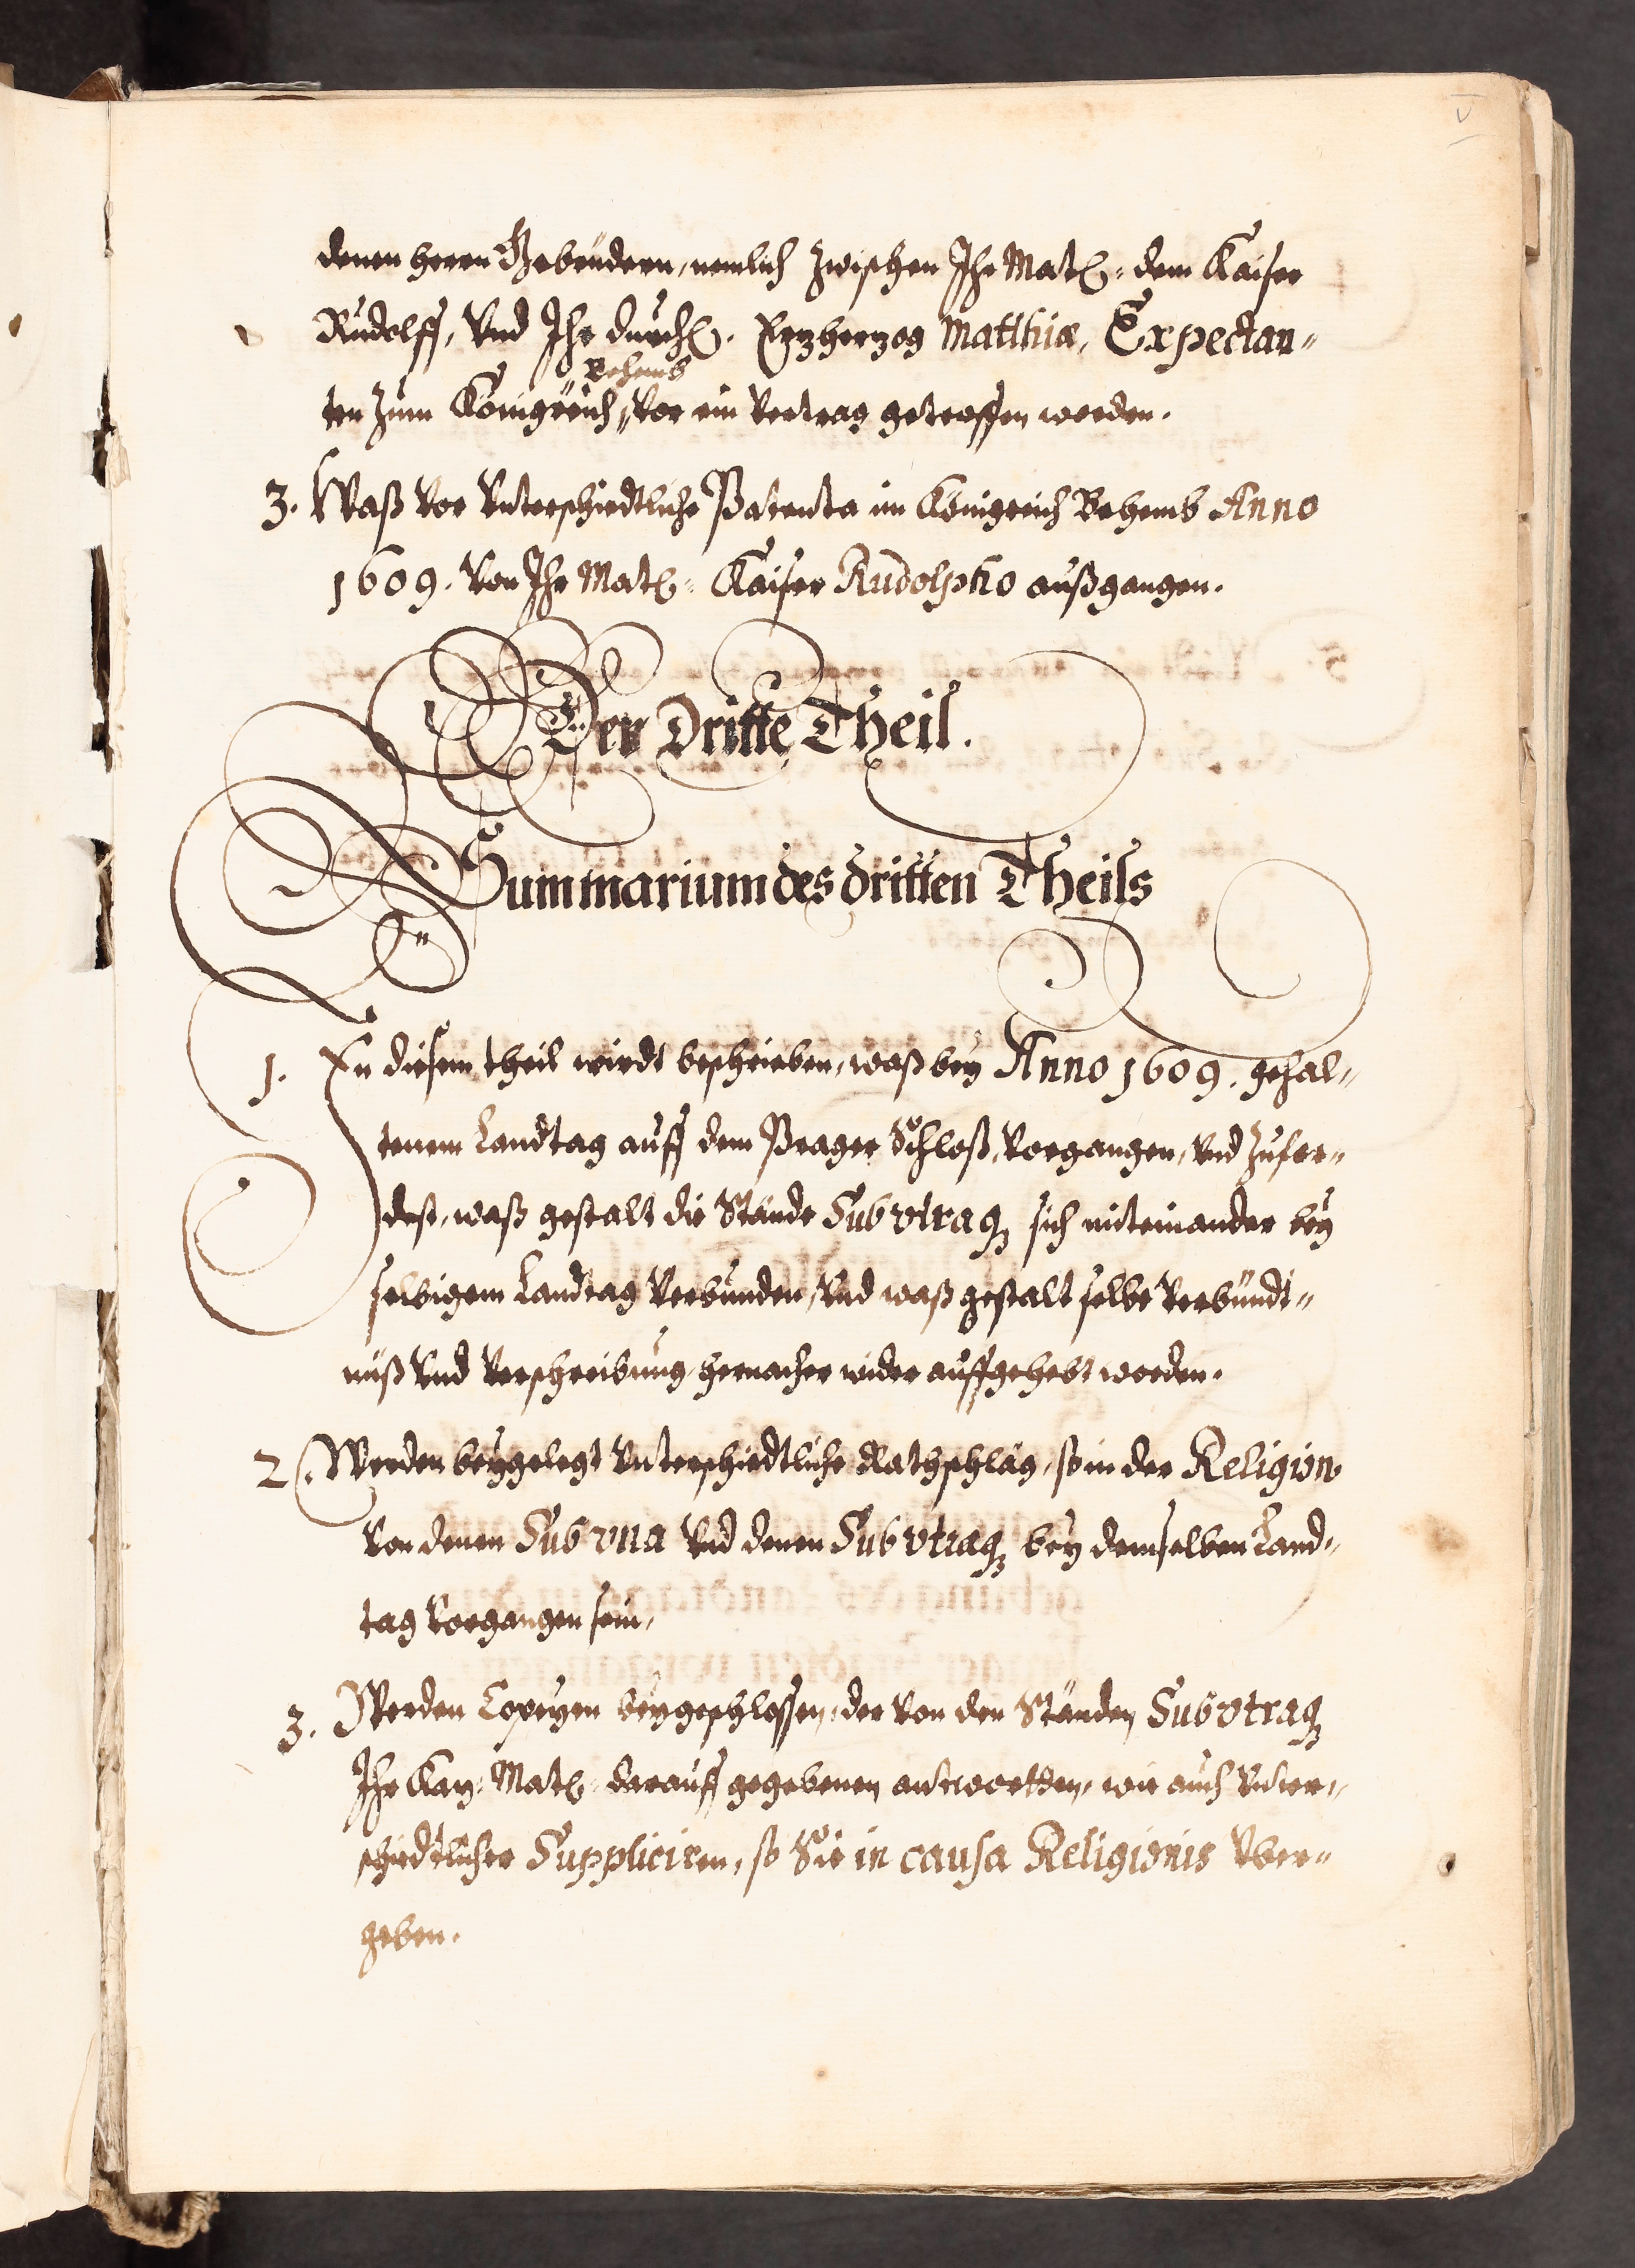 V
denen herrn Gebrüdern, nemlich zwischen Ihr Matt: dem Kaiser
Rudolff, Vnd Ihr durchl. Erzherzog Matthiæ, Expectan-
Behemb
ten zum Königreich, vor ein Vertrag getroffen worden.
3. Waß vor Vnterschiedtliche Patenta im Königreich Behemb Anno
1609. Von Ihr Matt: Kaiser Rudolpho außgangen.
Der Dritte Theil.
Summarium des dritten Theils
1. In diesem theil wirdt beschrieben, waß bey Anno 1609. gehal-
tenem Landtag auff dem Prager Schloß, Vorgangen, Vnd zufor-
dest, waß gestalt die Stände Sub vtraq3 sich miteinander bey
selbigem Landtag Verbunden, Vnd waß gestalt selbe Verbündt-
nüß Vnd Verschreibung hernacher wider auffgehebt worden.
2. Werden beygelegt Vnterschiedtliche Rathschläg, so in der Religion
Von denen Sub vna Vnd denen Sub vtraq3 bey demselben Land-
tag Vorgangen sein,
3. Werden Copeyen beygeschlossen, der Von den Ständen Sub vtraq3
Ihr Kay: Matt: darauff gegebenen antwortten, wie auch Vnter-
schiedtlicher Suppliciren, so Sie in causa Religionis Vber-
geben.